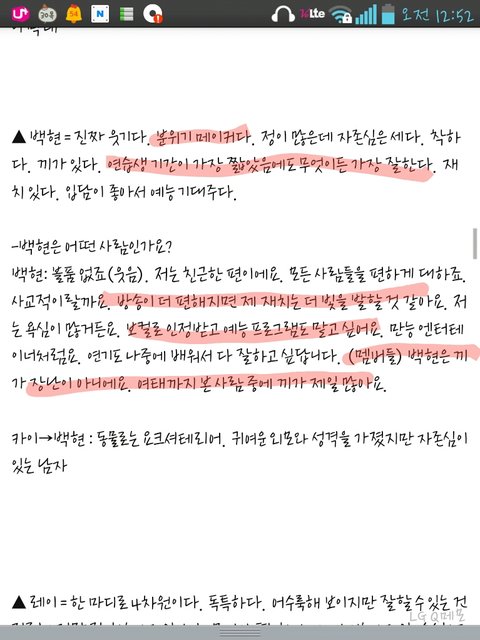 오전 12:52
▲ 백현 = 진짜 웃기다. 분위기 메이커다. 정이 많은데 자존심은 세다. 착하
다. 끼가 있다. 연습생 기간이 가장 짧았음에도 무엇이든 가장 잘한다. 재
치 있다. 입담이 좋아서 예능 기대주다.
-백현은 어떤 사람인가요?
백현: 볼품 없죠(웃음). 저는 친근한 편이에요. 모든 사람들을 편하게 대하죠.
사교적이랄까요. 방송이 더 편해지면 제 재치는 더 빛을 발할 것 같아요. 저
는 욕심이 많거든요. 보컬로 인정받고 예능 프로그램도 맡고 싶어요. 만능 엔터테
이너처럼요. 연기도 나중에 배워서 다 잘하고 싶답니다. (멤버들) 백현은 끼
가 장난이 아니에요. 여태까지 본 사람 중에 끼가 제일 많아요.
카이→백현 : 동물로는 요크셔테리어. 귀여운 외모와 성격을 가졌지만 자존심이
있는 남자
▲ 레이 = 한 마디로 4차원이다. 독특하다. 어수룩해 보이지만 잘할 수 있는 건
LG Q메모